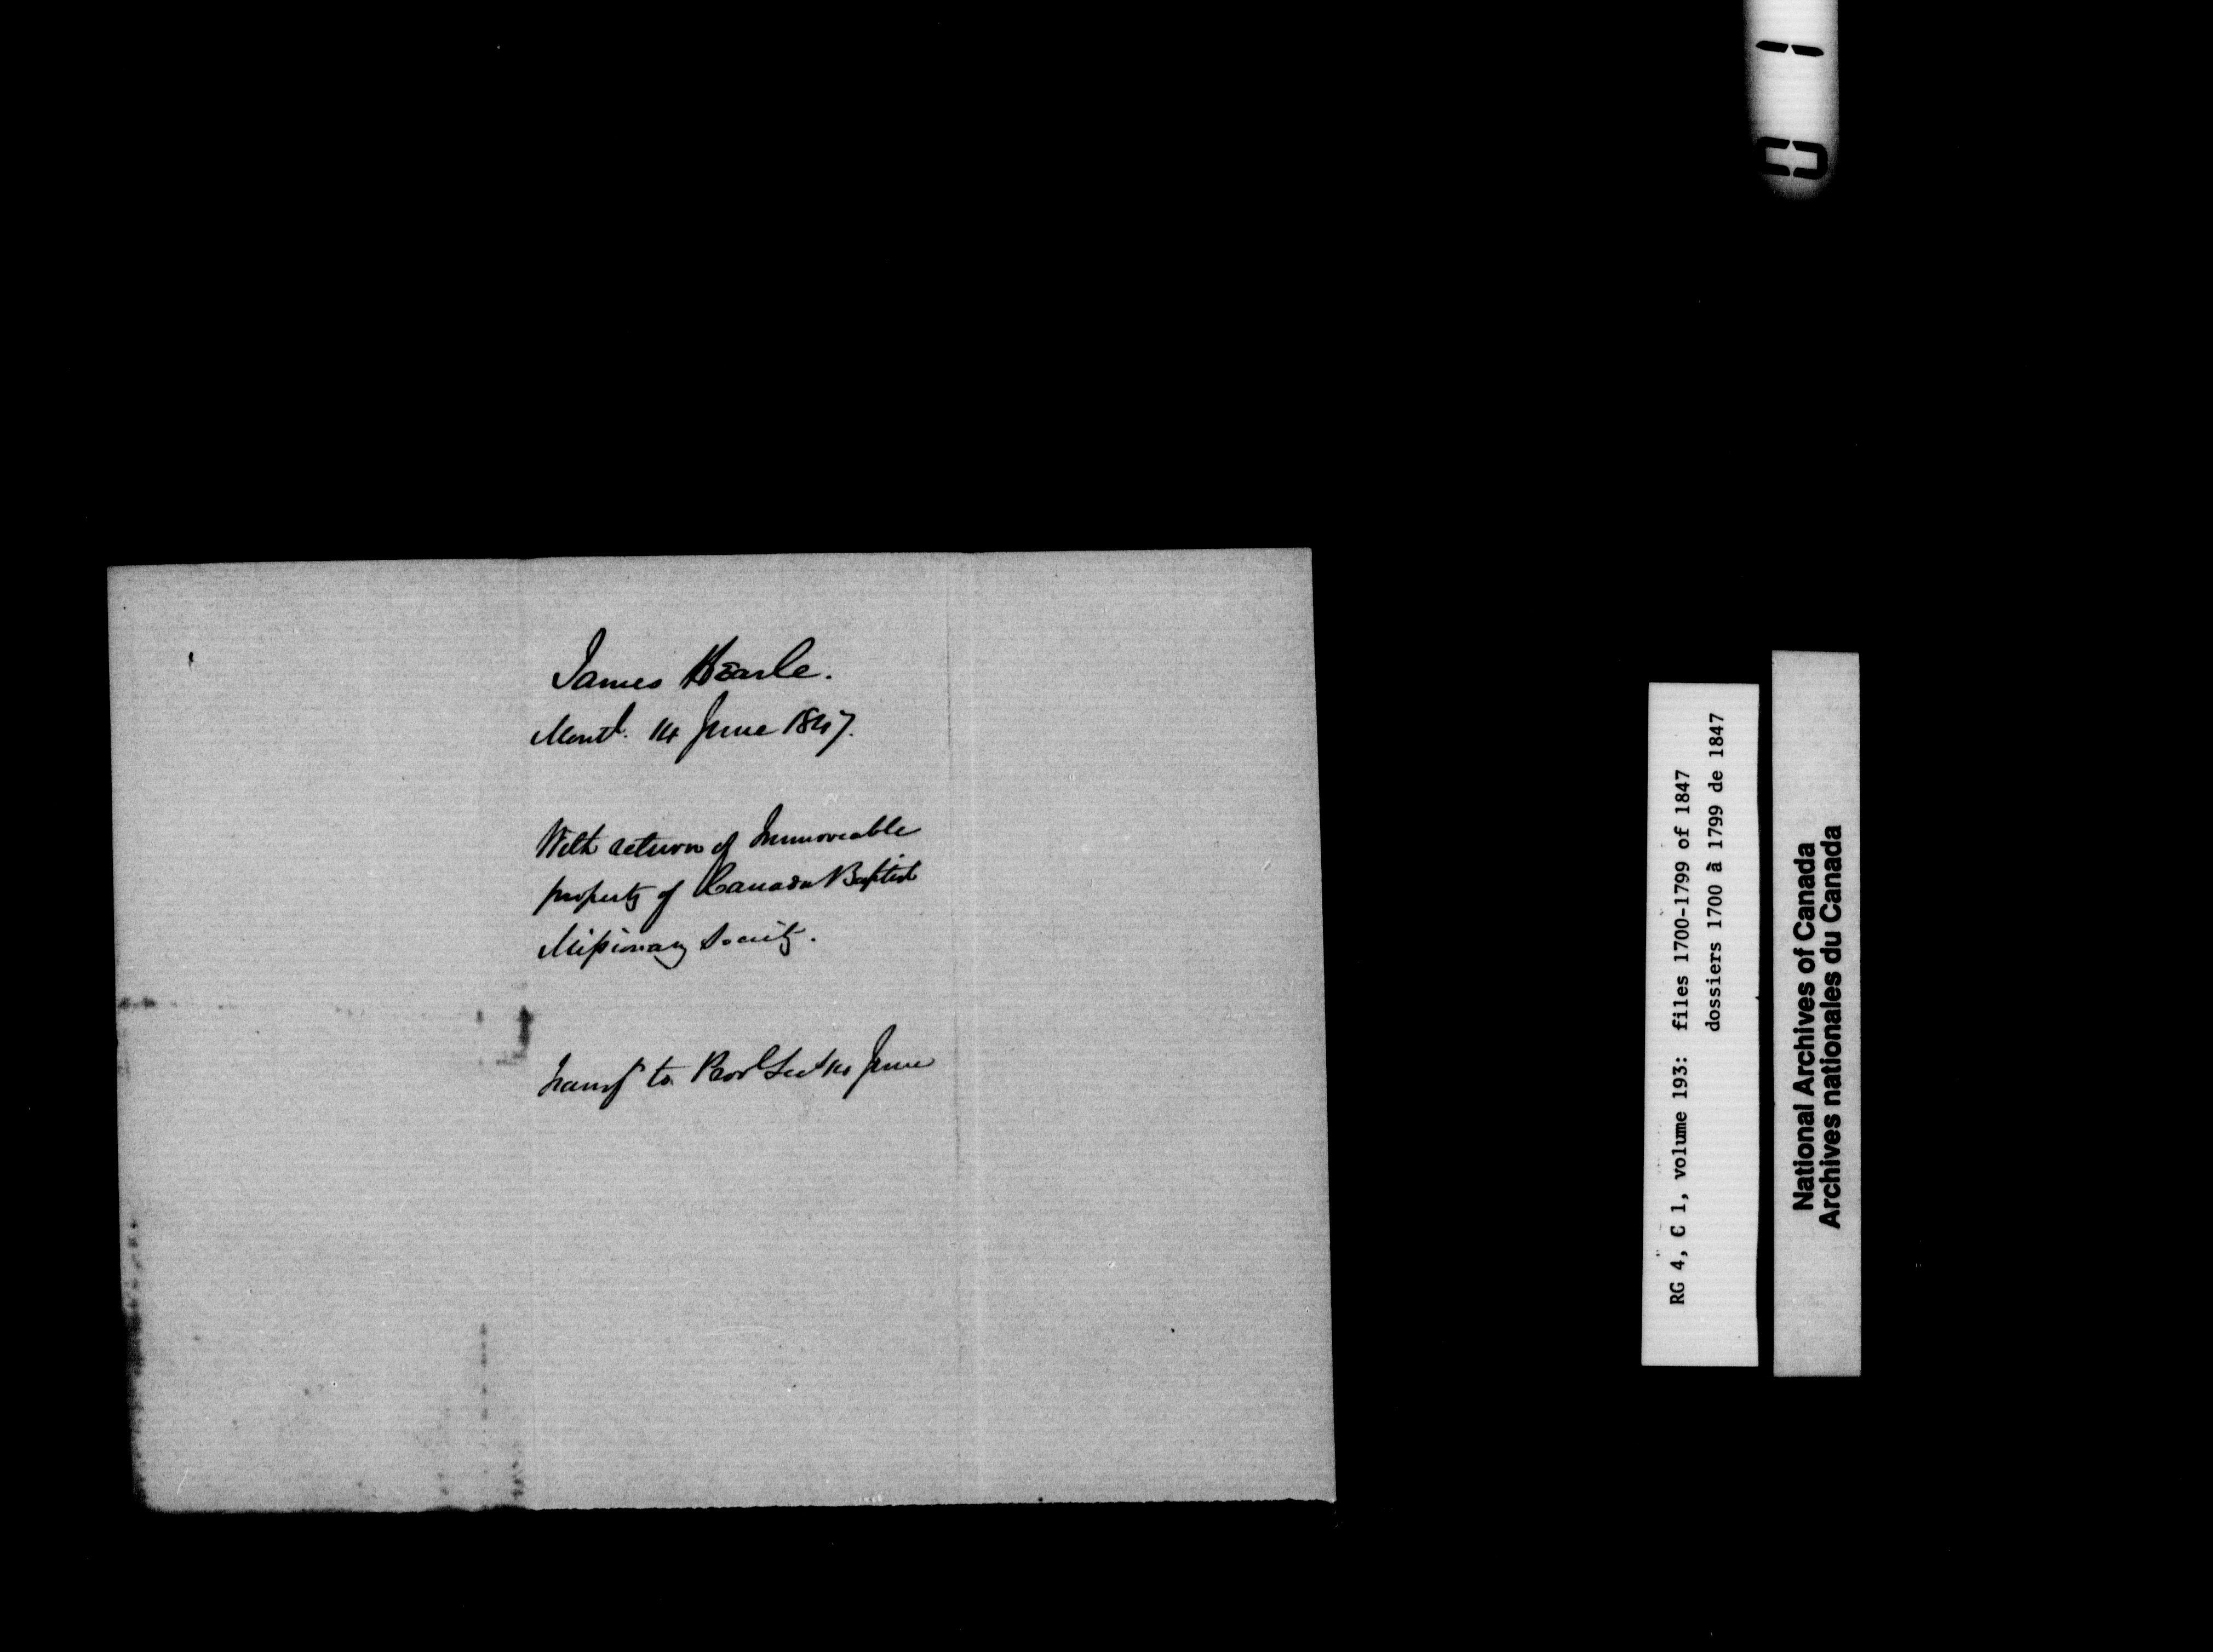 James Searle.
Montl. 14 June 1847.
With return of Immoveable
property of Canada Baptist
Missionary Society.
Transf to Prov Sec 14 June
RG 4, C 1, volume 193: files 1700-1799 of 1847
dossiers 1700 à 1799 de 1847
National Archives of Canada
Archives nationales du Canada